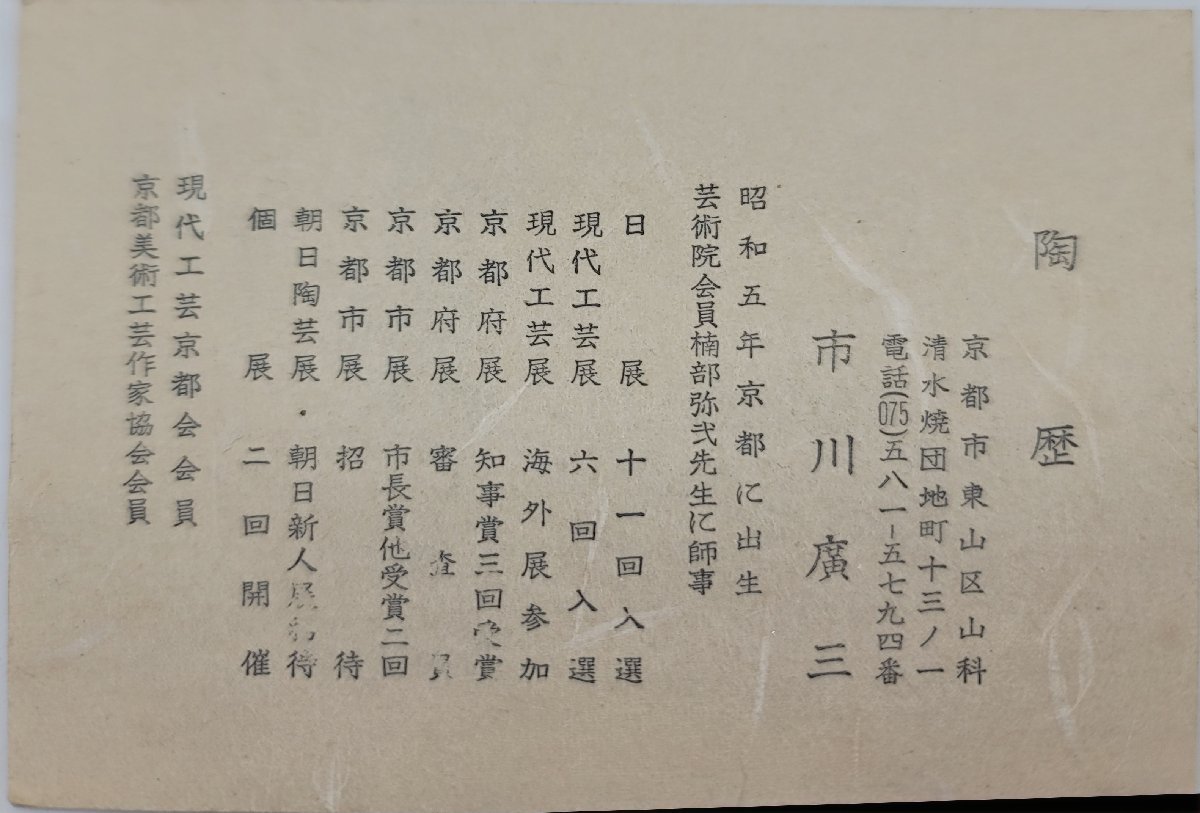 陶歴
京都市東山区山科
清水焼団地町十三ノ一
電話(075)五八一-五七九四番
市川廣三
昭和五年京都に出生
芸術院会員楠部弥弌先生に師事
日展 十一回入選
現代工芸展 六回入選
現代工芸展 海外展参加
京都府展 知事賞三回受賞
京都府展 審査員
京都市展 市長賞他受賞二回
京都市展 招待
朝日陶芸展・朝日新人展招待
個展 二回開催
現代工芸京都会会員
京都美術工芸作家協会会員